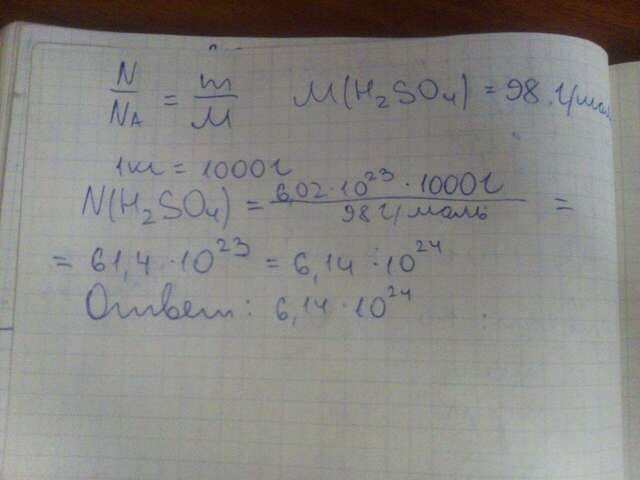 N/N_A = m/M M(H₂SO₄) = 98 г/моль
1кг = 1000г
N(H₂SO₄) = 6,02·10²³·1000г / 98 г/моль =
= 61,4·10²³ = 6,14·10²⁴
Ответ: 6,14·10²⁴